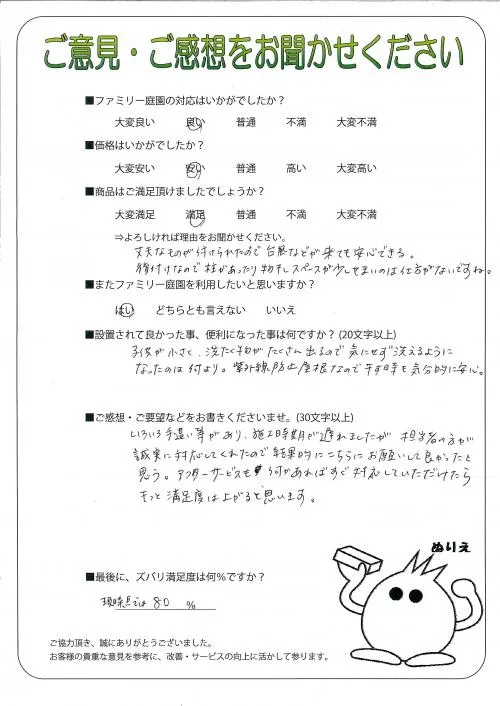 ご意見・ご感想をお聞かせください
■ファミリー庭園の対応はいかがでしたか？
大変良い 良い 普通 不満 大変不満
■価格はいかがでしたか？
大変安い 安い 普通 高い 大変高い
■商品はご満足頂けましたでしょうか？
大変満足 満足 普通 不満 大変不満
⇒よろしければ理由をお聞かせください。
丈夫なものが付けられたので台風などが来ても安心できる。
後付けなので柱があったり物干しスペースが少しせまいのは仕方がないですね。
■またファミリー庭園を利用したいと思いますか？
はい どちらとも言えない いいえ
■設置されて良かった事、便利になった事は何ですか？(20文字以上)
子供が小さく、洗たく物がたくさん出るので気にせず洗えるように
なったのは何より。紫外線防止屋根なので干す時も気分的に安心。
■ご感想・ご要望などをお書きくださいませ。(30文字以上)
いろいろ手違い等があり、施工時期が遅れましたが 担当者の方が
誠実に対応してくれたので結果的にこちらにお願いして良かったと
思う。アフターサービスも 何かあればすぐ対応していただけたら
もっと満足度は上がると思います。
ぬりえ
■最後に、ズバリ満足度は何％ですか？
現時点では 80 %
ご協力頂き、誠にありがとうございました。
お客様の貴重な意見を参考に、改善・サービスの向上に活かして参ります。